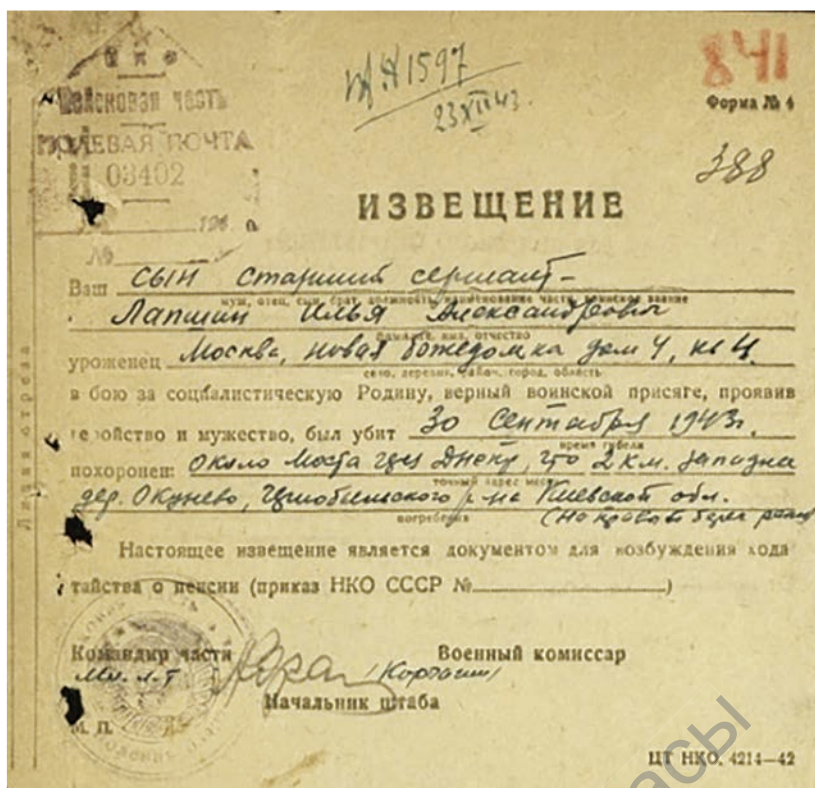 НКО
Войсковая часть
ПОЛЕВАЯ ПОЧТА
03402
194 г.
№
№ 1597
23 XII 43.
841
Форма № 4
388
ИЗВЕЩЕНИЕ
Ваш сын старший сержант-
муж, отец, сын, брат, должность, наименование части, воинское звание
Лапшин Илья Александрович
фамилия, имя, отчество
уроженец Москва, Новая Божедомка дом 4, кв 4.
село, деревня, район, город, область
в бою за социалистическую Родину, верный воинской присяге, проявив
геройство и мужество, был убит 30 Сентября 1943г.
время гибели
похоронен: Около моста чрез Днепр, что 2 км. западна
точный адрес места
дер. Окунево, р-на Киевской обл.
погребения
(На правом берег реки)
Настоящее извещение является документом для возбуждения хода
тайства о пенсии (приказ НКО СССР № )
Командир части
Военный комиссар
мл. л-т
/Корчагин/
Начальник штаба
М. П.
ЦТ НКО. 4214—42
Линия отреза
асы